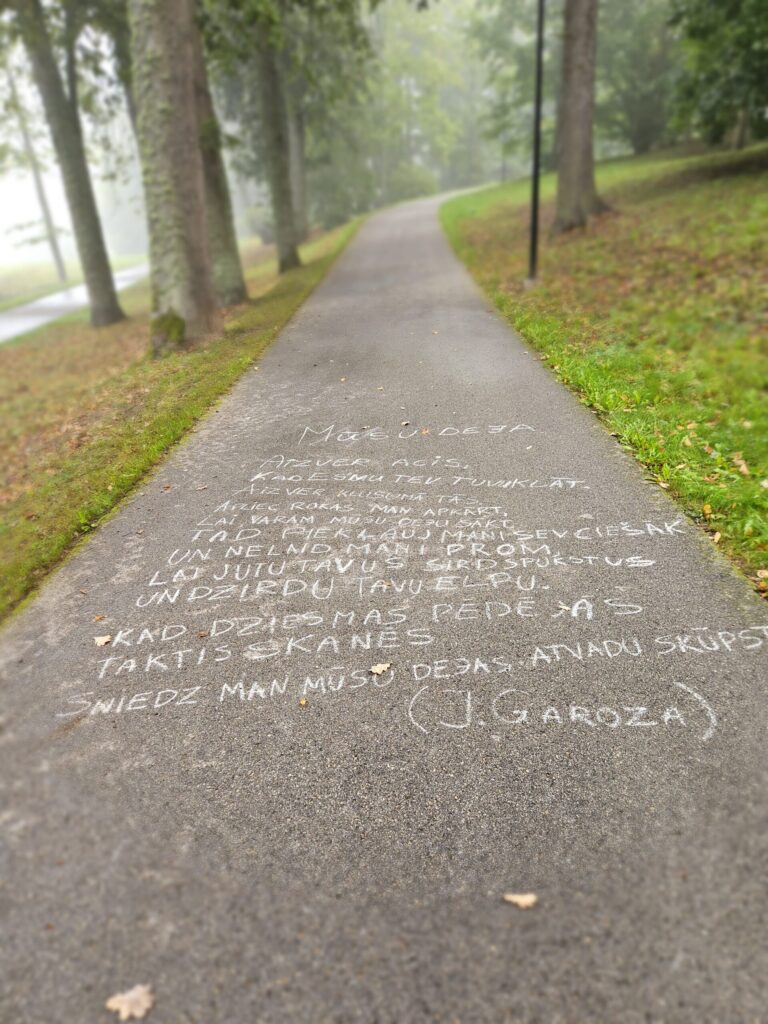 MŪSU DEJA
ATZVER ACIS,
KAD ESMU TEV TUVU KLĀT.
ATZVER KLUSUMĀ TĀS,
APLIEC ROKAS MAN APKĀRT,
LAI VARAM MŪSU DEJU SĀKT.
TAD PIEKĻAUJ MANI SEV CIEŠĀK
UN NELAID MANI PROM,
LAI JŪTU TAVUS SIRDSPUKSTUS
UN DZIRDU TAVU ELPU.
KAD DZIESMAS PĒDĒJĀS
TAKTIS SKANĒS
SNIEDZ MAN MŪSU DEJAS ATVADU SKŪPST
(J. GAROZA)